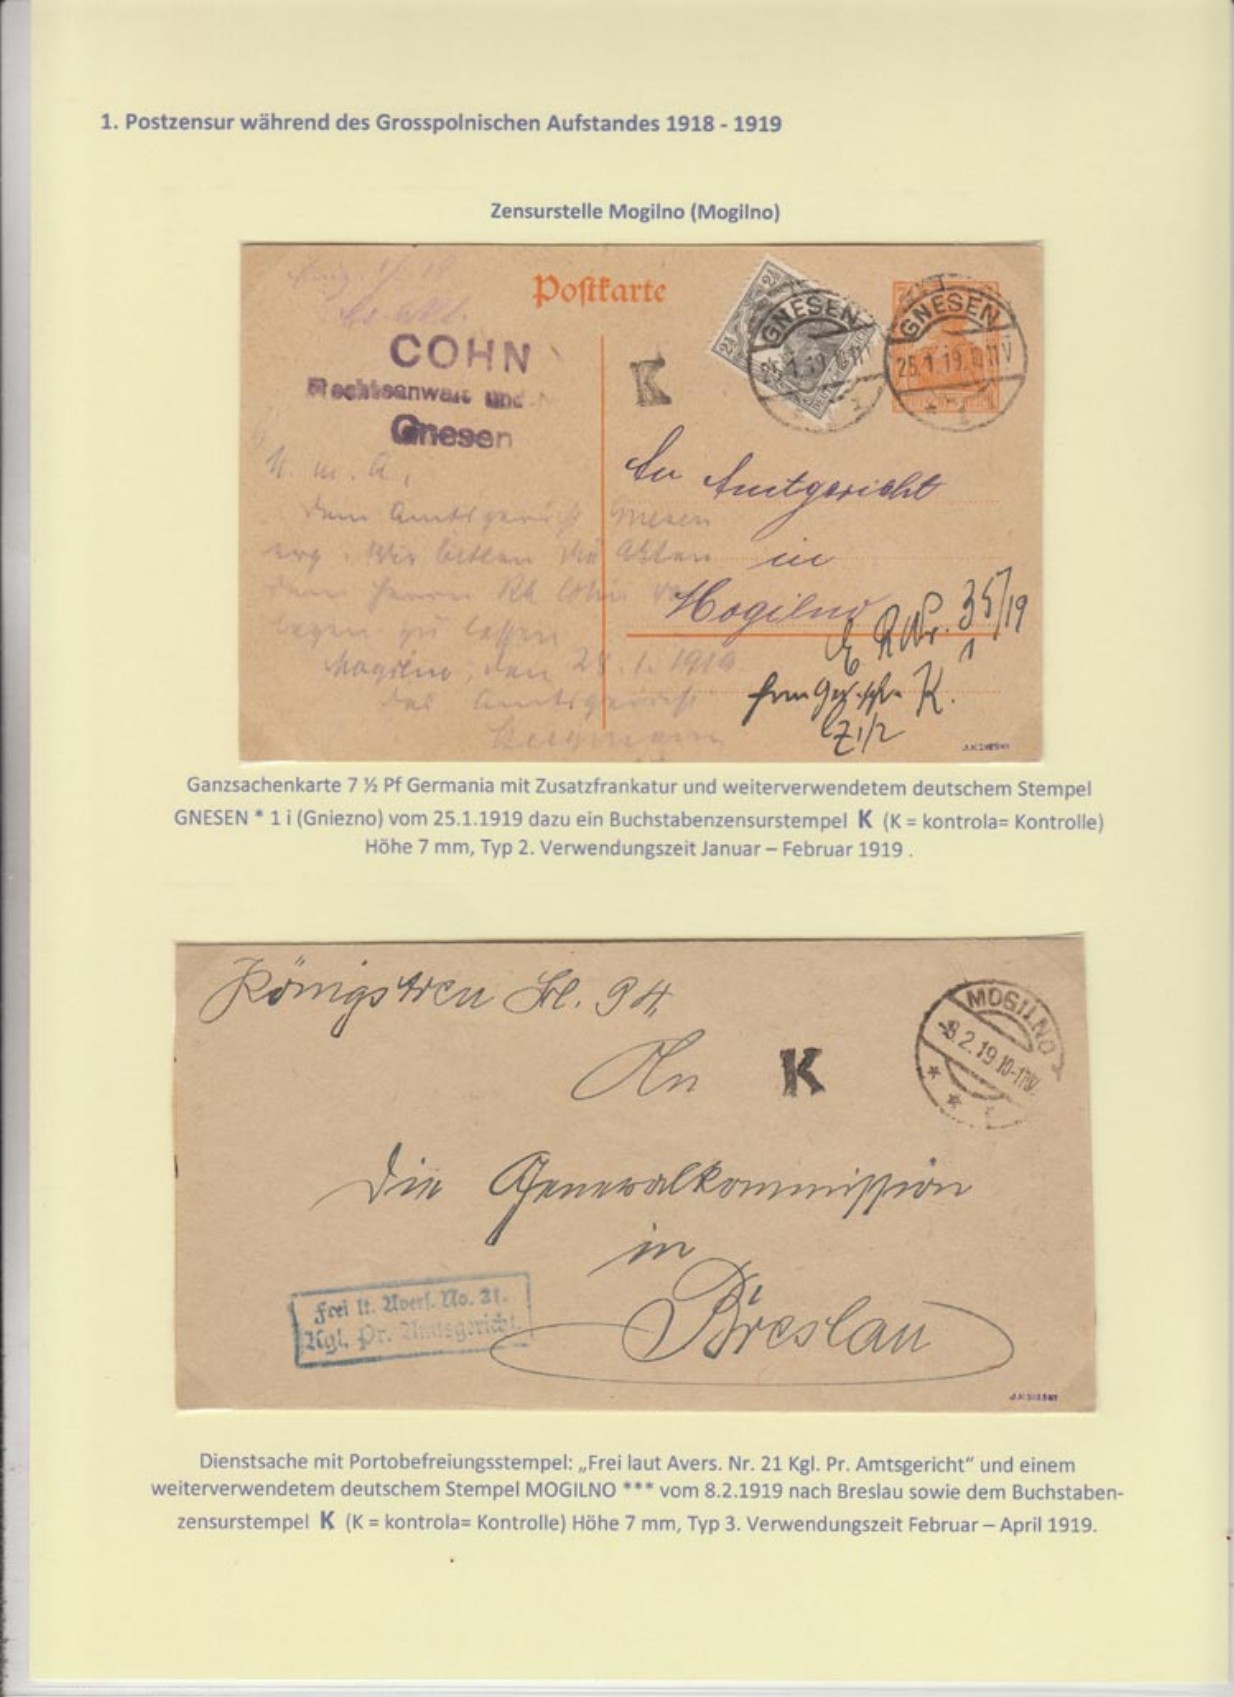 1. Postzensur während des Grosspolnischen Aufstandes 1918 - 1919
Zensurstelle Mogilno (Mogilno)
Postkarte
2½
2½
GNESEN
25.1.19.
GNESEN
25.1.19. 11V
COHN
Rechtsanwalt und
Gnesen
K
An Amtgericht
in
Mogilno
U. m. A.,
dem Amtsgericht Gnesen
erg. Wir bitten die Akten
dem Herrn RA Cohn vor
legen zu lassen
Mogilno, den 28.1.1919.
Das Amtsgericht
35/19
K.
Ganzsachenkarte 7 ½ Pf Germania mit Zusatzfrankatur und weiterverwendetem deutschem Stempel
GNESEN * 1 i (Gniezno) vom 25.1.1919 dazu ein Buchstabenzensurstempel K (K = kontrola= Kontrolle)
Höhe 7 mm, Typ 2. Verwendungszeit Januar – Februar 1919 .
Königstreu Bl. 94
MOGILNO
-8.2.19 10-11V
An K
die Generalkommission
in
Breslau
Frei lt. Avers. No. 21.
Kgl. Pr. Amtsgericht.
Dienstsache mit Portobefreiungsstempel: „Frei laut Avers. Nr. 21 Kgl. Pr. Amtsgericht" und einem
weiterverwendetem deutschem Stempel MOGILNO *** vom 8.2.1919 nach Breslau sowie dem Buchstaben-
zensurstempel K (K = kontrola= Kontrolle) Höhe 7 mm, Typ 3. Verwendungszeit Februar – April 1919.